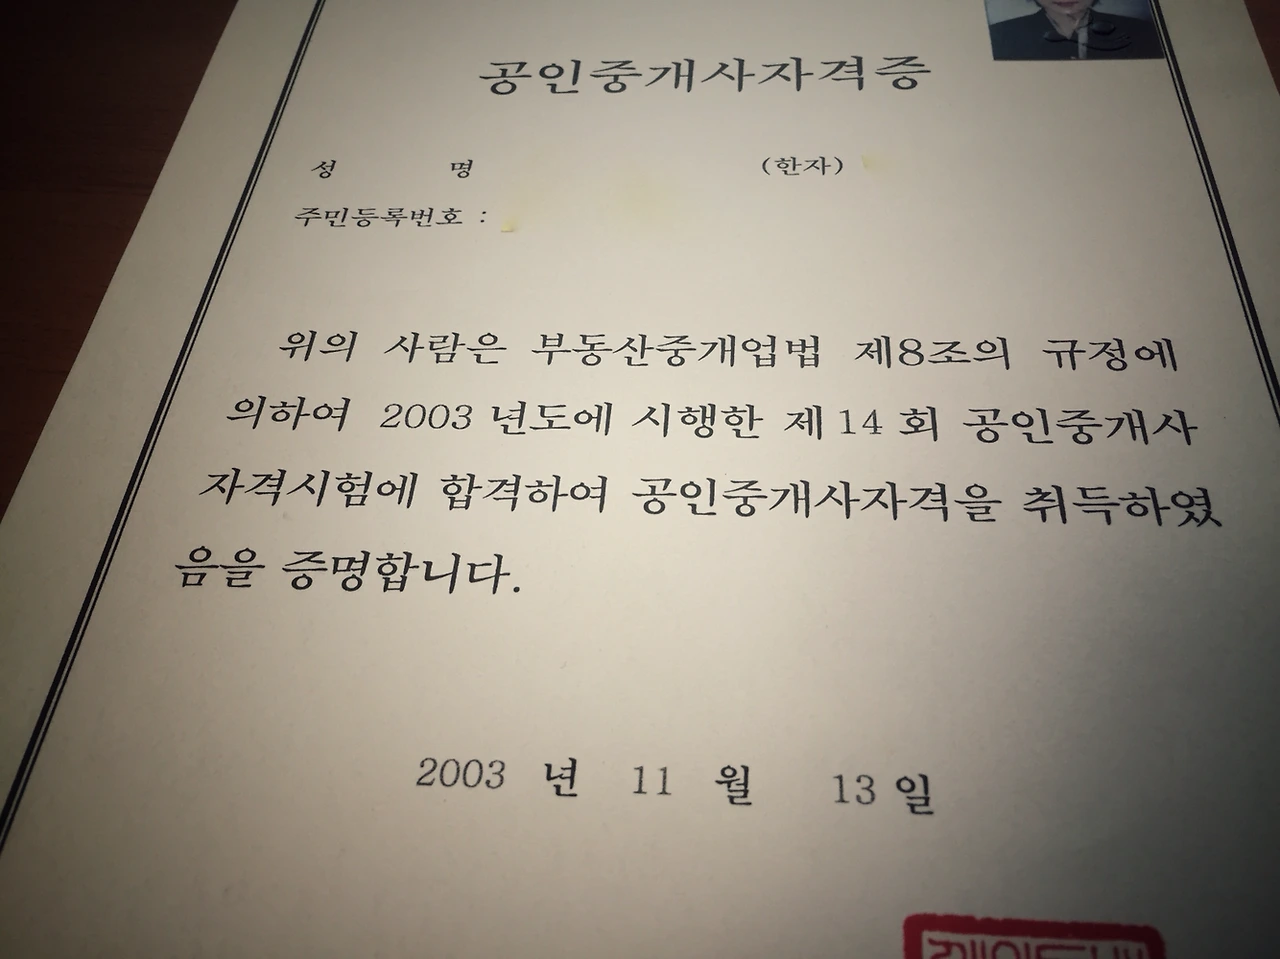 공인중개사자격증
성 명 (한자)
주민등록번호 :
위의 사람은 부동산중개업법 제8조의 규정에
의하여 2003 년도에 시행한 제 14 회 공인중개사
자격시험에 합격하여 공인중개사자격을 취득하였
음을 증명합니다.
2003 년 11 월 13 일